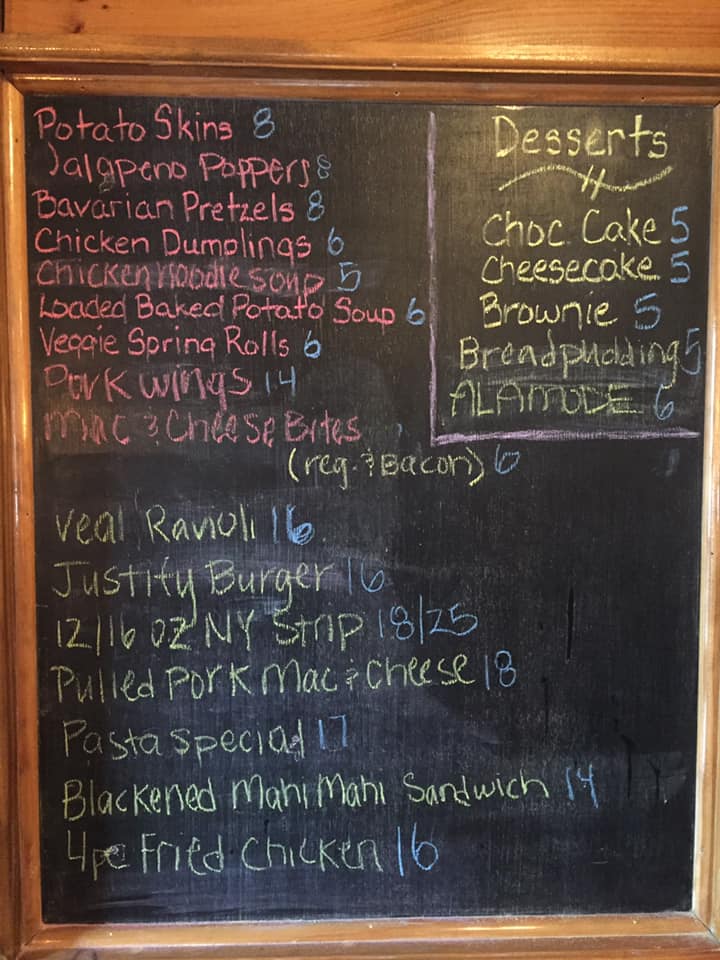 Potato Skins 8
Jalapeno Poppers 8
Bavarian Pretzels 8
Chicken Dumplings 6
Chicken noodle soup 5
Loaded Baked Potato Soup 6
Veggie Spring Rolls 6
Pork wings 14
Mac & Cheese Bites
(reg. & Bacon) 6
Desserts
Choc. Cake 5
Cheesecake 5
Brownie 5
Breadpudding 5
ALAMODE 6
Veal Ravioli 16
Justify Burger 16
12/16 oz NY Strip 18/25
Pulled Pork Mac & Cheese 18
Pasta special 17
Blackened Mahi Mahi Sandwich 14
4pc Fried Chicken 16